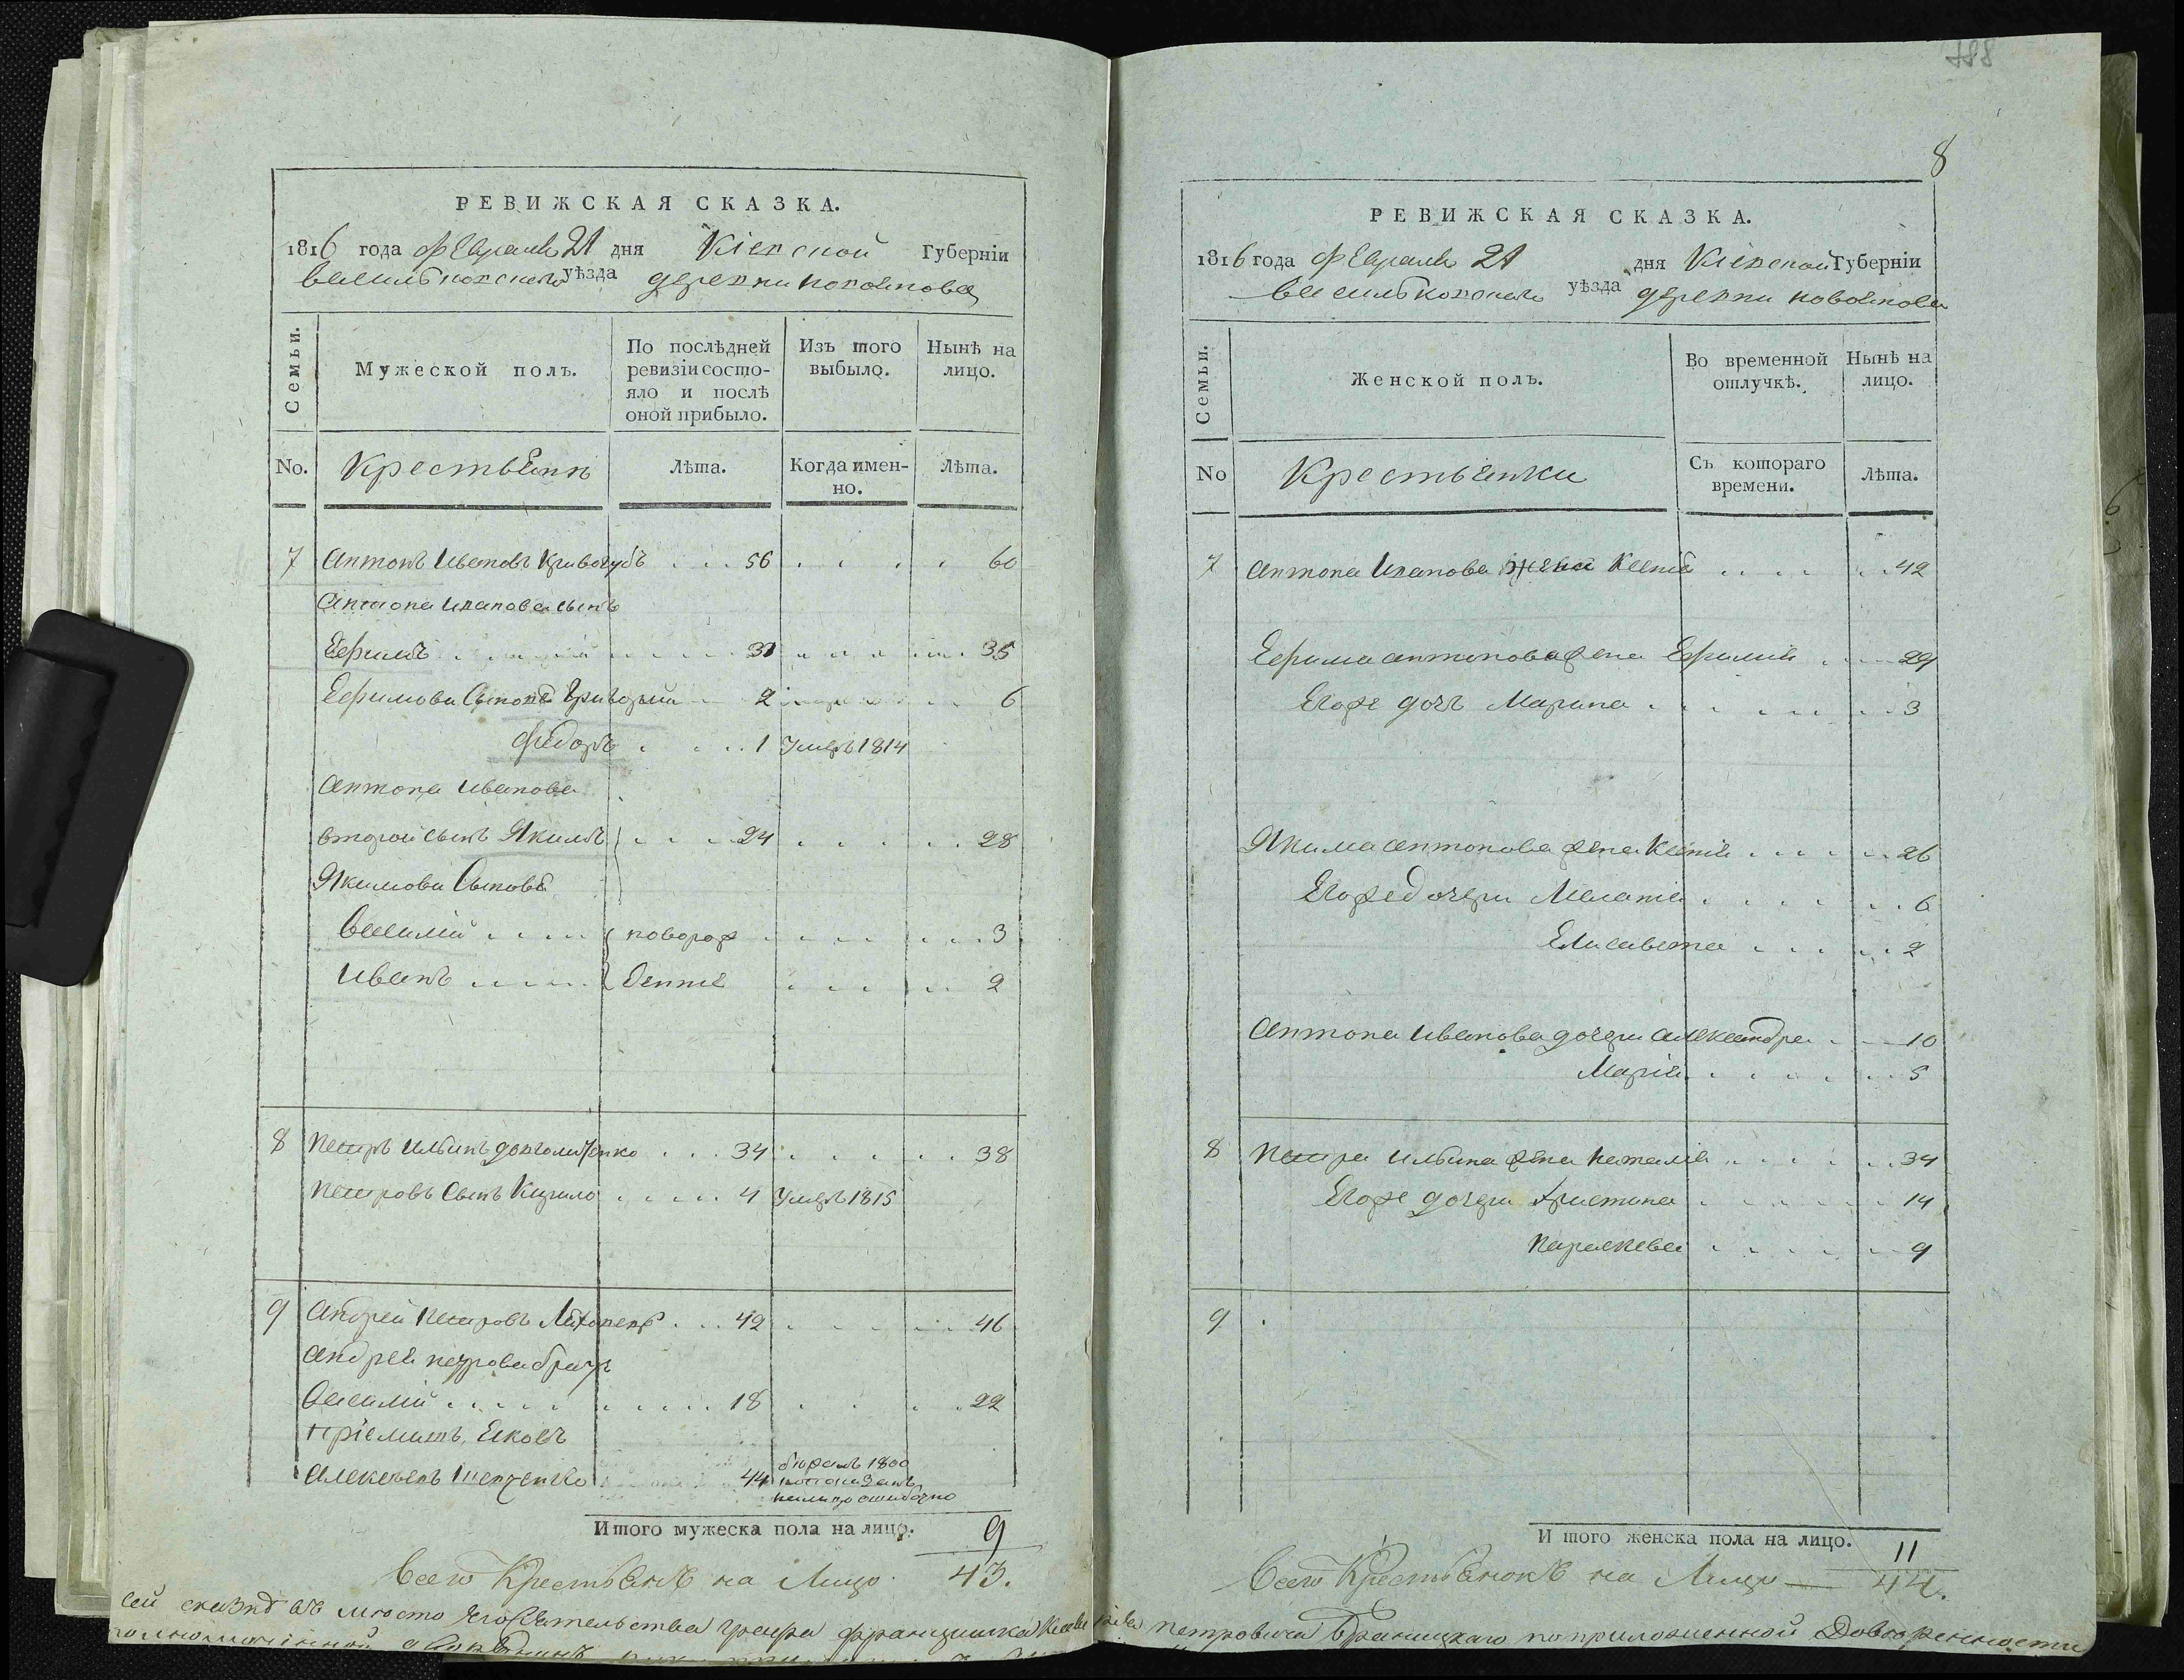 РЕВИЖСКАЯ СКАЗКА.
1816 года Февраля 21 дня Кіевской Губерніи
Васильковского уѣзда деревни
Семьи.
Мужеской полъ.
По послѣдней ревизіи состояло и послѣ оной прибыло.
Изъ того выбыло.
Нынѣ на лицо.
No.
Крестьянъ
Лѣта.
Когда именно.
Лѣта.
7 Антонъ Ивановъ Кривочубъ . . . 56 . . . . 60
Антона Иванова сынъ
Ефимъ . . . 31 . . . . 35
Ефимовы Сыновѣ Григорий 2 . . . 6
Федоръ . . . 1 Умеръ 1814
Антона Иванова
второй сынъ Якимъ . . . 24 . . . . 28
Якимовы Сыновѣ
Василій . . . . новорож . . . . 3
Иванъ . . . . денніе . . . . 2
8 Петръ Ильинъ . . . 34 . . . . 38
Петровъ Сынъ Кирило . . . . 4 Умеръ 1815
9 Андрей Петровъ . . . 42 . . . . 46
Андрея петрова братъ
Василій . . . . 18 . . . . 22
Пріемышъ Яковъ
Алексѣевъ Шевченко 44 бѣжалъ 1800
показанъ
налицо ошибочно
Итого мужеска пола на лицо. 9
Всего Крестьянъ на Лицо. 43.
788
8
РЕВИЖСКАЯ СКАЗКА.
1816 года Февраля 21 дня Кіевской Губерніи
Васильковского уѣзда деревни
Семьи.
Женской полъ.
Во временной отлучкѣ.
Нынѣ на лицо.
No
Крестьянки
Съ котораго времени.
Лѣта.
7 Антона Иванова жена Ксенія . . . . 42
Ефима антонова жена Ефимия . . . . 29
Егоже дочъ Марина . . . . 3
Якима антонова жена Ксенія . . . . 26
Егоже дочери Меланія . . . . 6
Елисавета . . . . 2
Антона Иванова дочери Александра . . . 10
Марія . . . . 5
8 Петра Ильина жена Наталія . . . . 34
Егоже дочери Христина . . . . 14
Параскева . . . . 9
9
Итого женска пола на лицо. 11
Всего Крестьянокъ на Лицо — 44.
сей сказкѣ въ место его Сіятельства графа францишка Ксаверіева Петровича Браницкаго по приложенной Доверенности